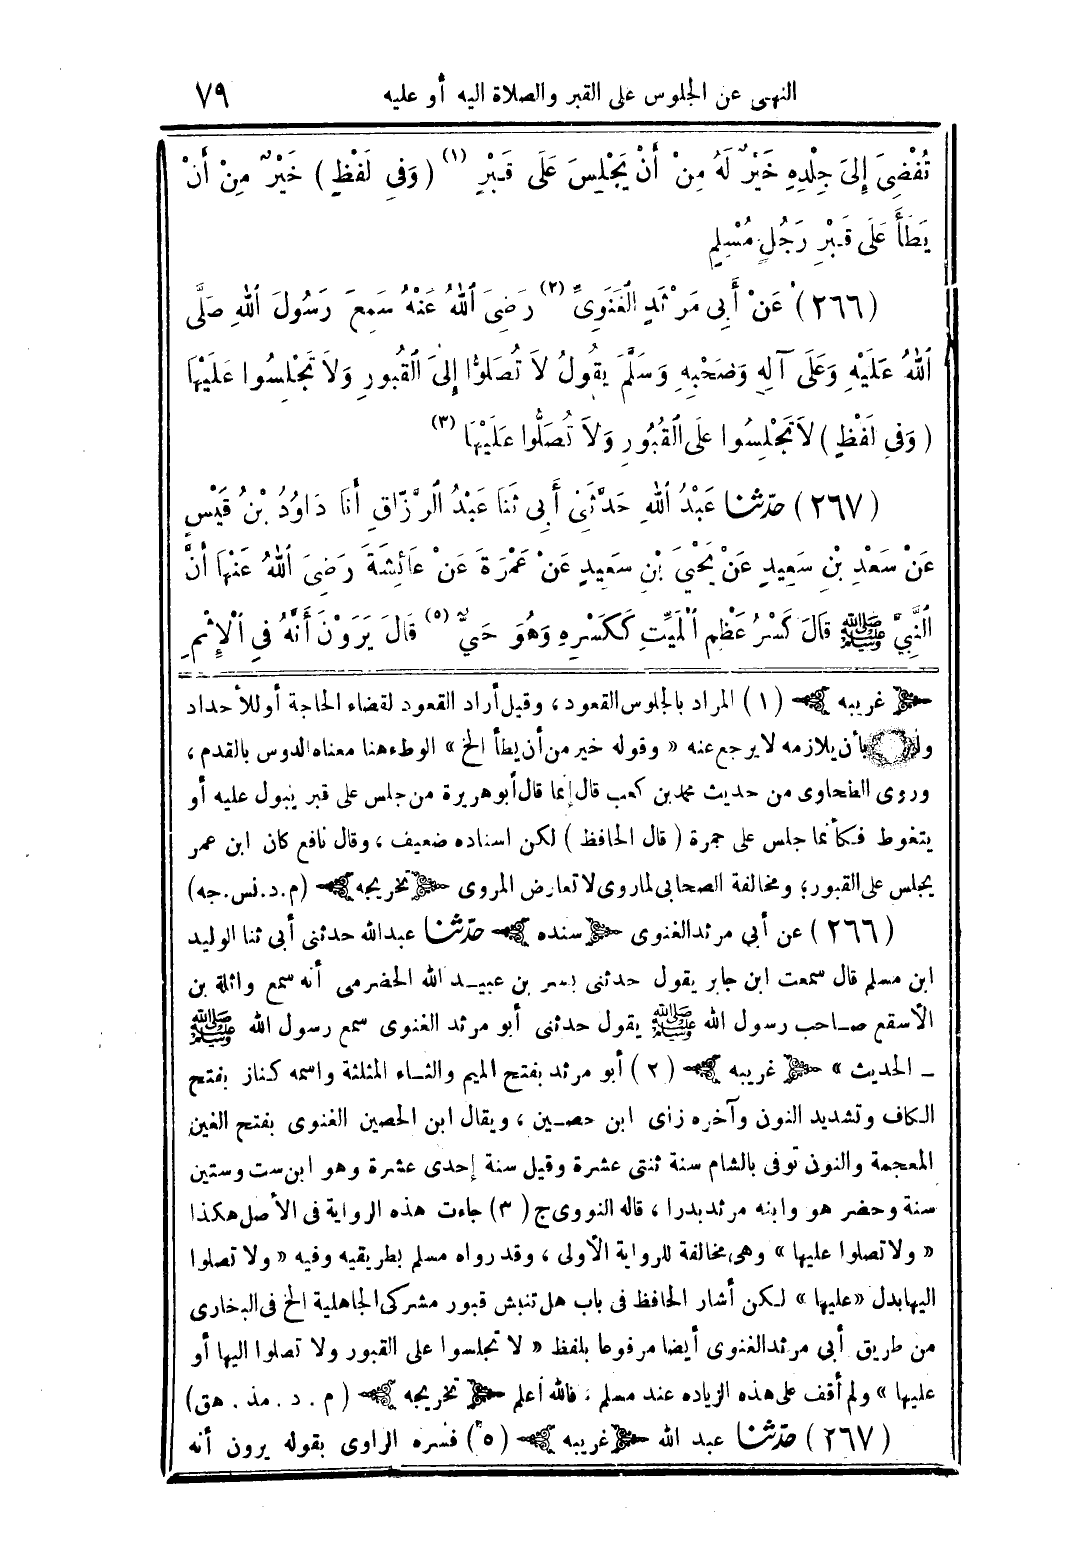 النهى عن الجلوس على القبر والصلاة اليه أو عليه ٧٩
تُفْضِىَ إِلَى جِلْدِهِ خَيْرٌ لَهُ مِنْ أَنْ يَجْلِسَ عَلَى قَبْرٍ (١) ( وَفِى لَفْظٍ ) خَيْرٌ مِنْ أَنْ
يَطَأَ عَلَى قَبْرِ رَجُلٍ مُسْلِمٍ
(٢٦٦) عَنْ أَبِى مَرْثَدٍ الْغَنَوِىِّ (٢) رَضِىَ اللهُ عَنْهُ سَمِعَ رَسُولَ اللهِ صَلَّى
اللهُ عَلَيْهِ وَعَلَى آلِهِ وَصَحْبِهِ وَسَلَّمَ يَقُولُ لاَ تُصَلُّوا إِلَى الْقُبُورِ وَلاَ تَجْلِسُوا عَلَيْهَا
( وَفِى لَفْظٍ ) لاَ تَجْلِسُوا عَلَى الْقُبُورِ وَلاَ تُصَلُّوا عَلَيْهَا (٣)
(٢٦٧) حدّثنا عَبْدُ اللهِ حَدَّثَنِى أَبِى ثَنَا عَبْدُ الرَّزَّاقِ أَنَا دَاوُدُ بْنُ قَيْسٍ
عَنْ سَعْدِ بْنِ سَعِيدٍ عَنْ يَحْيَ بْنِ سَعِيدٍ عَنْ عَمْرَةَ عَنْ عَائِشَةَ رَضِىَ اللهُ عَنْهَا أَنَّ
النَّبِىَّ ﷺ قَالَ كَسْرُ عَظْمِ الْمَيِّتِ كَكَسْرِهِ وَهُوَ حَىٌّ (٥) قَالَ يَرَوْنَ أَنَّهُ فِى الْإِثْمِ
غريبه (١) المراد بالجلوس القعود ، وقيل أراد القعود لقضاء الحاجة أو للأحداد
بأن يلازمه لا يرجع عنه « وقوله خير من أن يطأ الخ » الوطء هنا معناه الدوس بالقدم ،
وروى الطحاوى من حديث محمد بن كعب قال إنما قال أبو هريرة من جلس على قبر يبول عليه أو
يتغوط فكأنما جلس على جمرة ( قال الحافظ ) لكن اسناده ضعيف ، وقال نافع كان ابن عمر
يجلس على القبور ؛ ومخالفة الصحابى لما روى لا تعارض المروى تخريجه (م . د . نس . جه)
(٢٦٦) عن أبى مرثد الغنوى سنده حدّثنا عبد الله حدثنى أبى ثنا الوليد
ابن مسلم قال سمعت ابن جابر يقول حدثنى بسر بن عبيد الله الحضرمى أنه سمع واثلة بن
الأسقع صاحب رسول الله ﷺ يقول حدثنى أبو مرثد الغنوى سمع رسول الله ﷺ
ـ الحديث » غريبه (٢) أبو مرثد بفتح الميم والثاء المثلثة واسمه كناز بفتح
الكاف وتشديد النون وآخره زاى ابن حصين ، ويقال ابن الحصين الغنوى بفتح الغين
المعجمة والنون توفى بالشام سنة ثنتى عشرة وقيل سنة إحدى عشرة وهو ابن ست وستين
سنة وحضر هو وابنه مرثد بدرا ، قاله النووى ج (٣) جاءت هذه الرواية فى الأصل هكذا
« ولا تصلوا عليها » وهى مخالفة للرواية الأولى ، وقد رواه مسلم بطريقيه وفيه « ولا تصلوا
اليها بدل « عليها » لكن أشار الحافظ فى باب هل تنبش قبور مشركى الجاهلية الخ فى البخارى
من طريق أبى مرثد الغنوى أيضا مرفوعا بلفظ « لا تجلسوا على القبور ولا تصلوا اليها أو
عليها » ولم أقف على هذه الزياده عند مسلم ، فالله أعلم تخريجه (م . د . مذ . هق)
(٢٦٧) حدّثنا عبد الله غريبه (٥) فسره الراوى بقوله يرون أنه